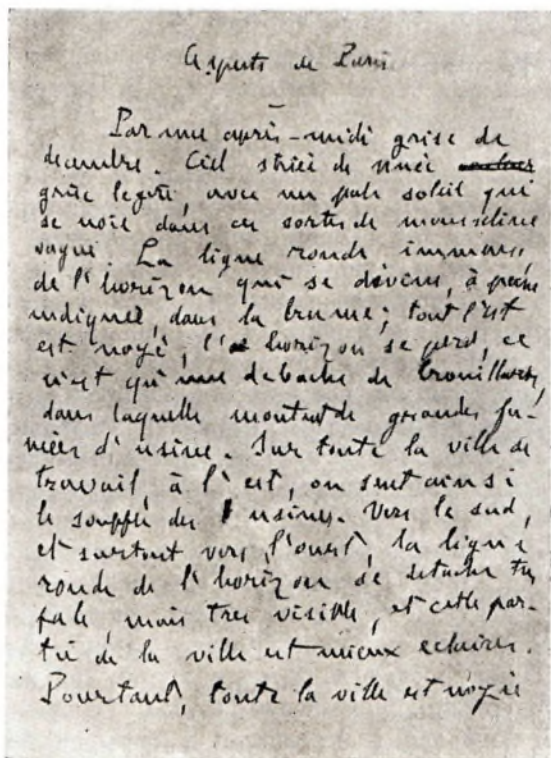 Aspects de Paris
Par une après-midi grise de
décembre. Ciel striée de nuée
grise legère, avec un pale soleil qui
se noie dans ces sortes de mousseline
vague. La ligne ronde immense,
de l'horizon qui se devine, à peine
indiquée, dans la brume; tout l'est
est noyé, l'horizon se perd, ce
n'est qu'une debacle de brouillards,
dans laquelle montent de grandes fu-
mées d'usine. Sur toute la ville de
travail, à l'est, on sent ainsi
le souffle des usines. Vers le sud,
et surtout vers l'ouest, la ligne
ronde de l'horizon se detache très
pale, mais très visible, et cette par-
tie de la ville est mieux eclairée.
Pourtant, toute la ville est noyée